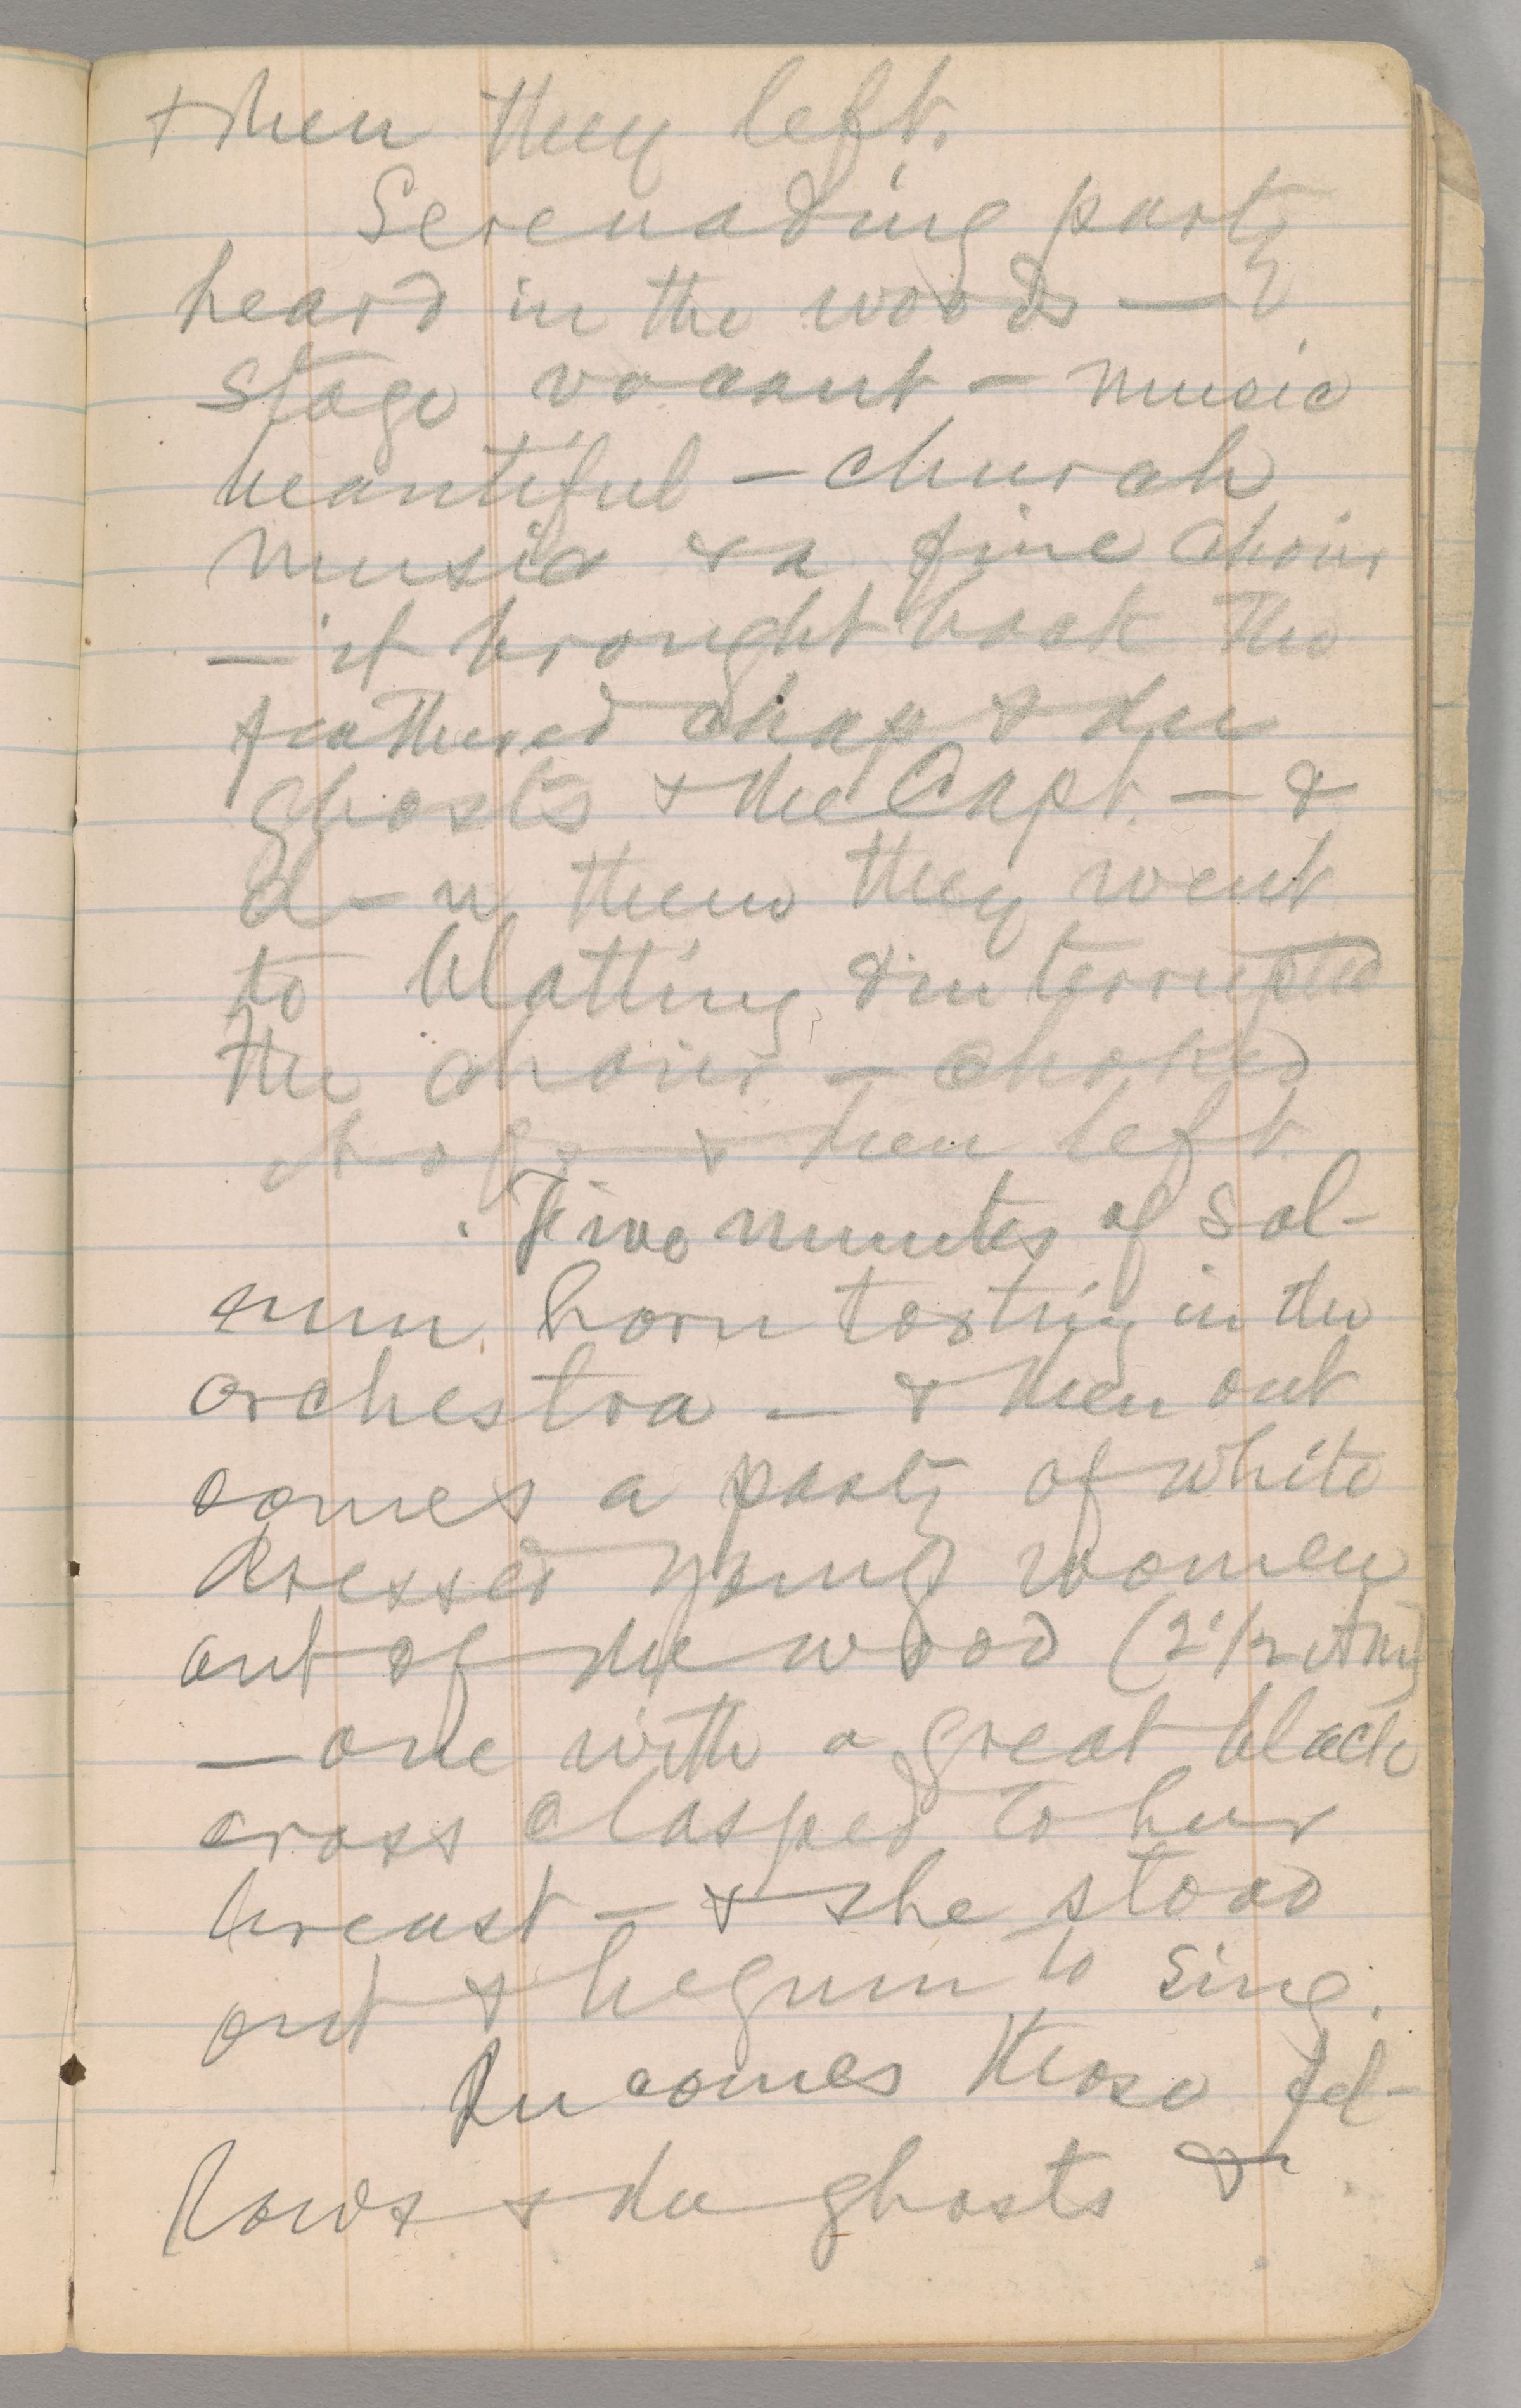 & then they left.
Serenading party
heard in the woods —
stage vacant — music
beautiful — church
music & a fine choir
— it brought back the
feathered chap & the
ghosts & the Capt. — &
d—n them they went
to blatting & interrupted
the choir — choked
it off & then left.
Five minutes of sol-
emn horn tooting in the
orchestra — & then out
comes a party of white
dressed young women
out of the wood (2d act)
— one with a great black
cross clasped to her
breast — & she stood
out & begun to sing.
In comes those fel-
lows & the ghosts &